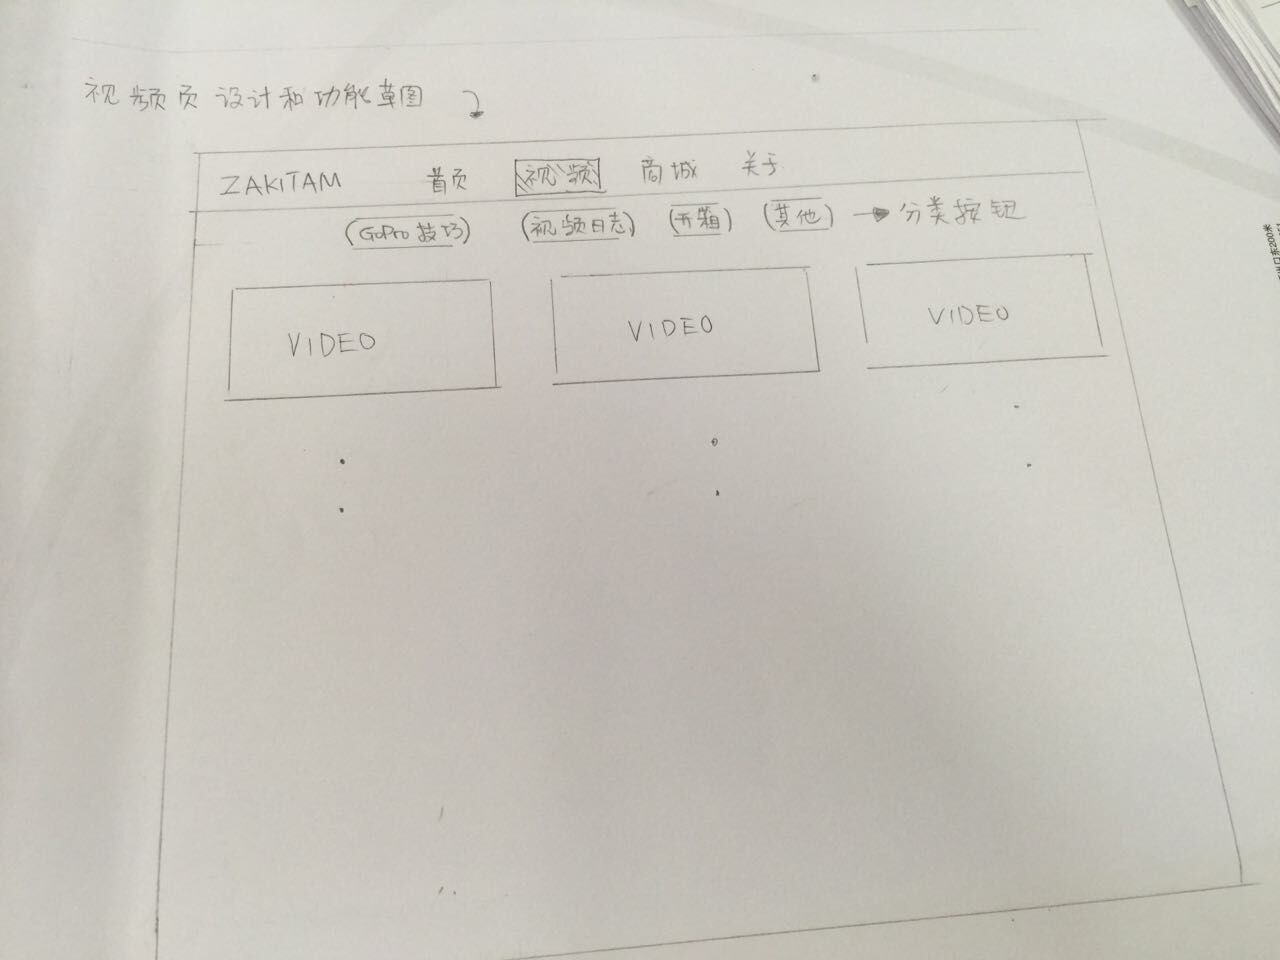 视频页设计和功能草图
ZAKITAM 首页 视频 商城 关于
GoPro 技巧 视频日志 开箱 其他 → 分类按钮
VIDEO VIDEO VIDEO